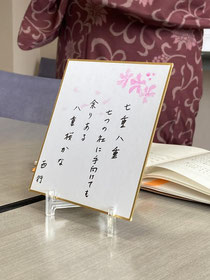 七重八重
七つの社に手向けても
余りある
八重桜かな
西行